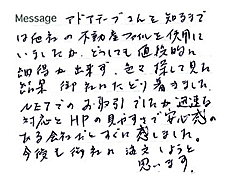 Message アドマイヤーブさんと知るまで
は他社の不動産ファイルを使用して
いましたが、どうしても値段的に
納得が出来ず、色々探して見た
結果 御社にたどり着きました。
NETでのお取引でしたが迅速な
対応とHPの見やすさで安心感の
ある会社だとすぐに感じました。
今後も御社に注文しようと
思います。